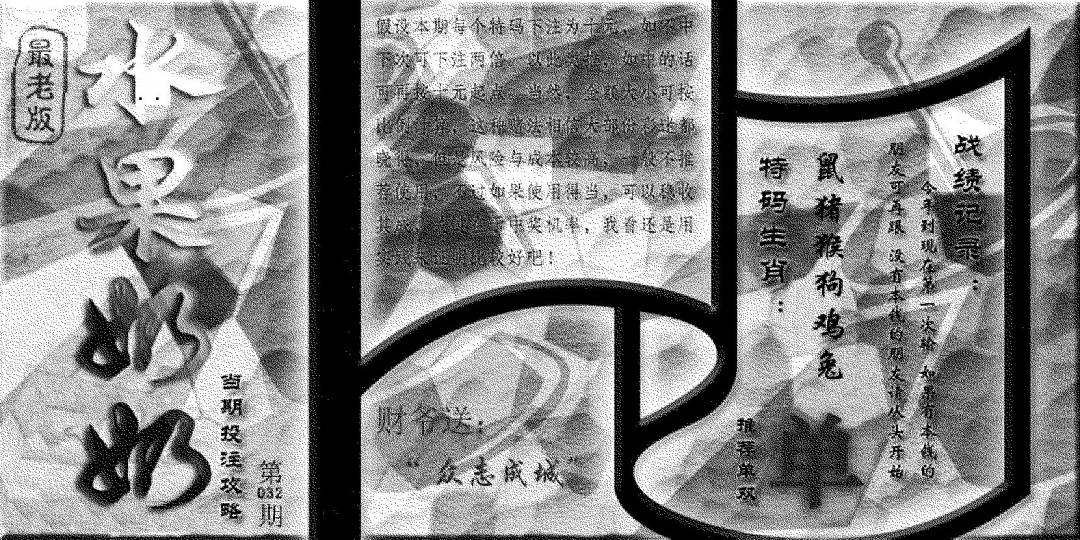 最老版
水果奶奶
当期投注攻略
第
032
期
假设本期每个特码下注为十元，如不中
下次可下注两倍，以此类推，如中的话
可再按十元起点。当然，金额大小可按
比例计算，这种赌法相信大部份彩迷都
晓得，但是风险与成本较高，一般不推
荐使用，不过如果使用得当，可以稳收
中奖机率，我看还是用
比较好吧！
财爷送：
“众志成城”
战绩记录：
今年到现在第一次输 如果有本钱的
朋友可再跟 没有本钱的朋友请从头开始
鼠猪猴狗鸡兔
特码生肖：
推荐单双
单